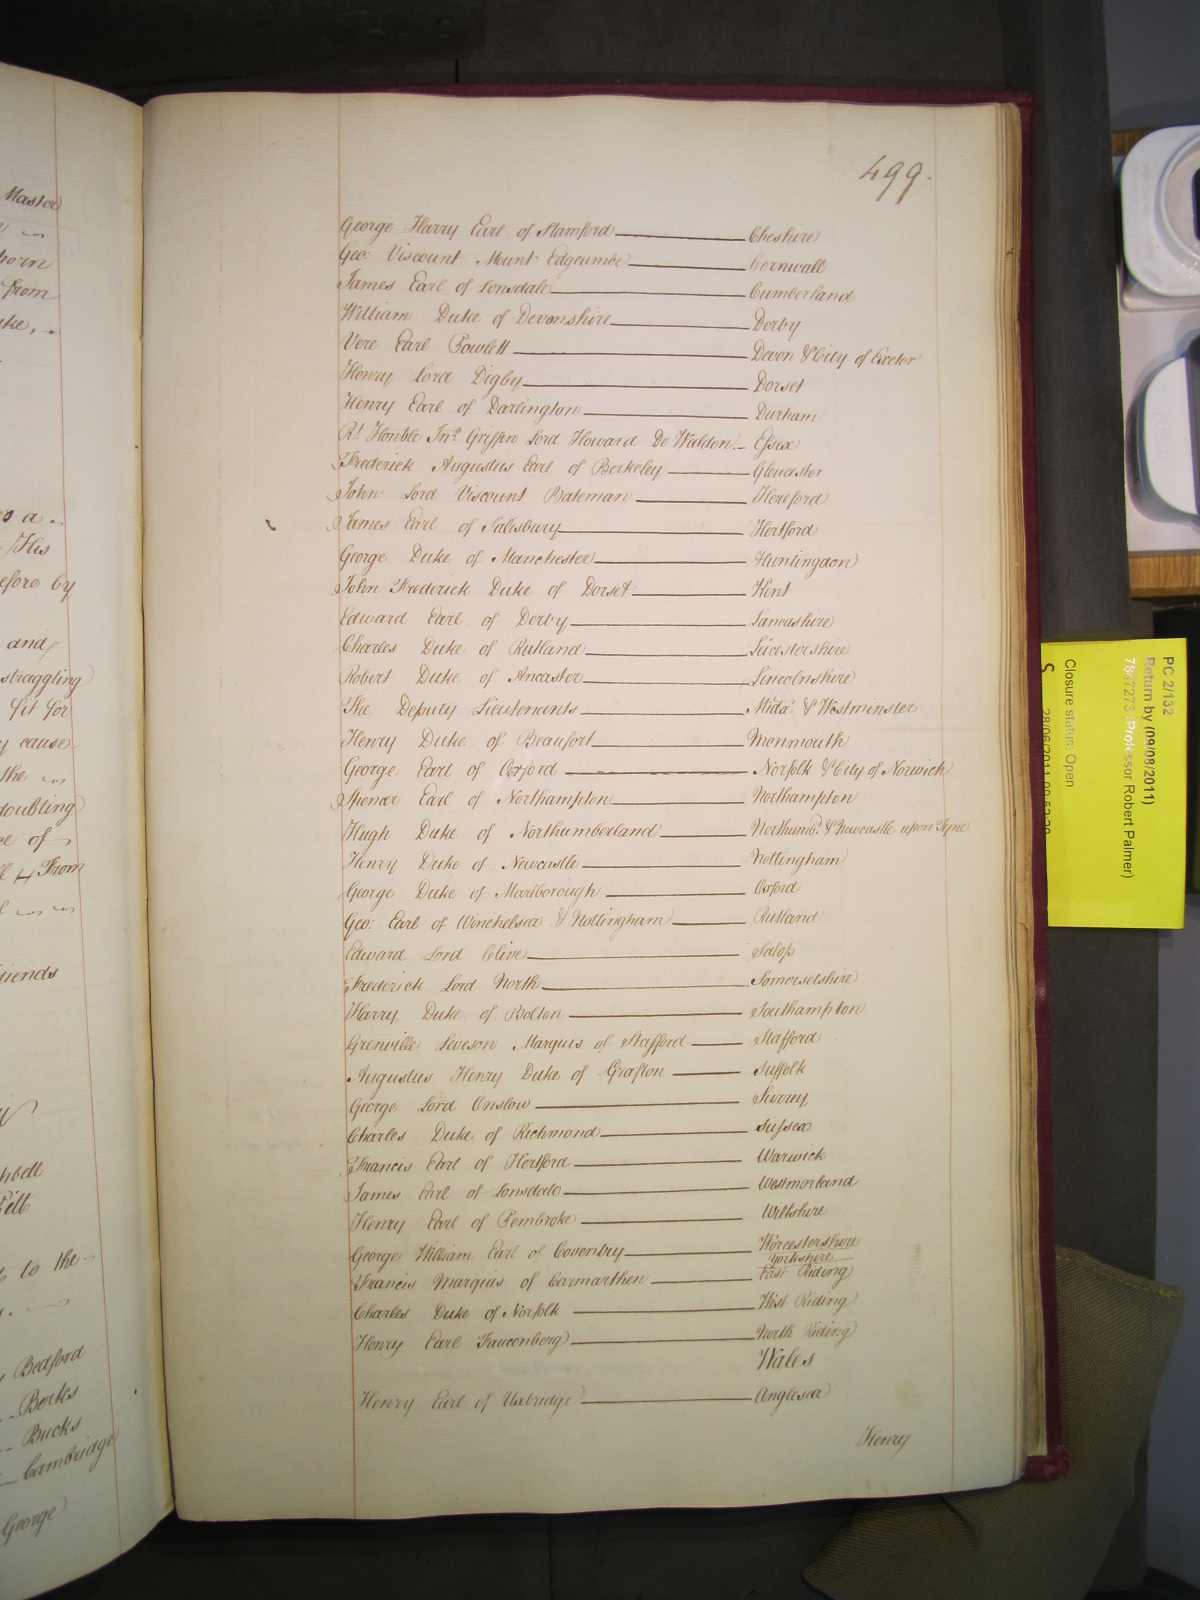 Master
horn
From
uke,
so a
His
efore by
and
straggling
fit for
y cause
the
doubling
ce of
From
riends
hbell
Pitt
to the
Bedford
Berks
Bucks
Cambridge
George
499.
George Harry Earl of Stamford Cheshire
Geo: Viscount Mount Edgcumbe Cornwall
James Earl of Lonsdale Cumberland
William Duke of Devonshire Derby
Vere Earl Powlett Devon & City of Exeter
Henry Lord Digby Dorset
Henry Earl of Darlington Durham
Rt. Honble Jno. Griffin Lord Howard De Walden Essex
Frederick Augustus Earl of Berkeley Gloucester
John Lord Viscount Bateman Hereford
James Earl of Salisbury Hertford
George Duke of Manchester Huntingdon
John Frederick Duke of Dorset Kent
Edward Earl of Derby Lancashire
Charles Duke of Rutland Leicestershire
Robert Duke of Ancaster Lincolnshire
The Deputy Lieutenants Midx & Westminster
Henry Duke of Beaufort Monmouth
George Earl of Orford Norfolk & City of Norwich
Spencer Earl of Northampton Northampton
Hugh Duke of Northumberland Northumbd. & Newcastle upon Tyne
Henry Duke of Newcastle Nottingham
George Duke of Marlborough Oxford
Geo: Earl of Winchelsea & Nottingham Rutland
Edward Lord Clive Salop
Frederick Lord North Somersetshire
Harry Duke of Bolton Southampton
Grenville Leveson Marquis of Stafford Stafford
Augustus Henry Duke of Grafton Suffolk
George Lord Onslow Surrey
Charles Duke of Richmond Sussex
Francis Earl of Hertford Warwick
James Earl of Lonsdale Westmorland
Henry Earl of Pembroke Wiltshire
George William Earl of Coventry Worcestershire
Yorkshire
Francis Marquis of Carmarthen East Riding
Charles Duke of Norfolk West Riding
Henry Earl Fauconberg North Riding
Wales
Henry Earl of Uxbridge Anglesea
Henry
PC 2/132
Return by (09/08/2011)
Professor Robert Palmer)
Closure status: Open
S 28/06/2011